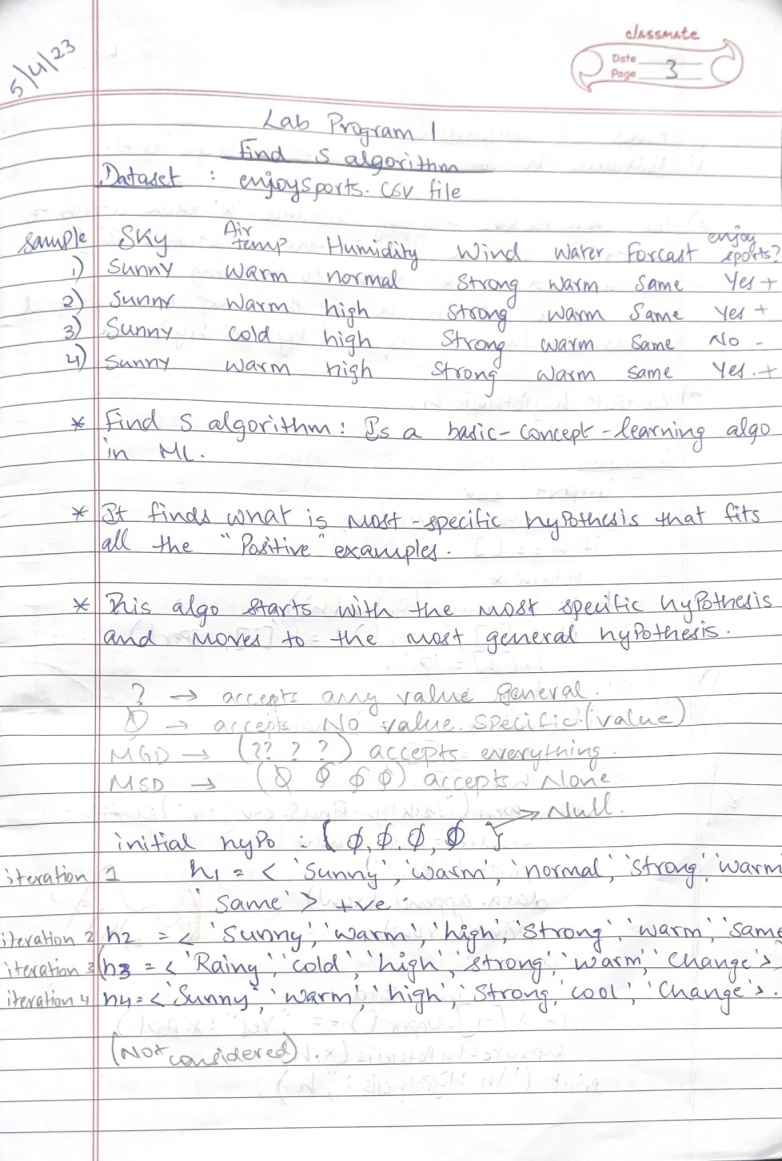 5/4/23
classmate
Date
Page 3
Lab Program 1
Find S algorithm
Dataset : enjoysports.csv file
Sample Sky Air temp Humidity Wind Water Forcast enjoy sports?
1) Sunny Warm normal Strong Warm Same Yes +
2) Sunny Warm high Strong Warm Same Yes +
3) Sunny cold high Strong warm Same No -
4) Sunny Warm high Strong Warm same Yes. +
* Find S algorithm : Is a basic-concept-learning algo
in ML.
* It finds what is most-specific hypothesis that fits
all the "Positive" examples.
* This algo starts with the most specific hypothesis
and moves to the most general hypothesis.
? → accepts any value General.
Ø → accepts NO value. Specific (value)
MGD → (?? ? ?) accepts everything
MSD → (Ø Ø Ø Ø) accepts None
→ Null.
initial hypo : { Ø, Ø, Ø, Ø }
iteration 1 h1 = < 'Sunny', 'warm', 'normal', 'strong', 'warm
'Same'> +ve
iteration 2 h2 = < 'Sunny', 'warm', 'high', 'strong', 'warm', 'same
iteration 3 h3 = < 'Rainy', 'cold', 'high', 'strong', 'warm', 'Change'>
iteration 4 h4 = < 'Sunny', 'warm', 'high', 'Strong, 'cool', 'Change'>.
(Not considered).